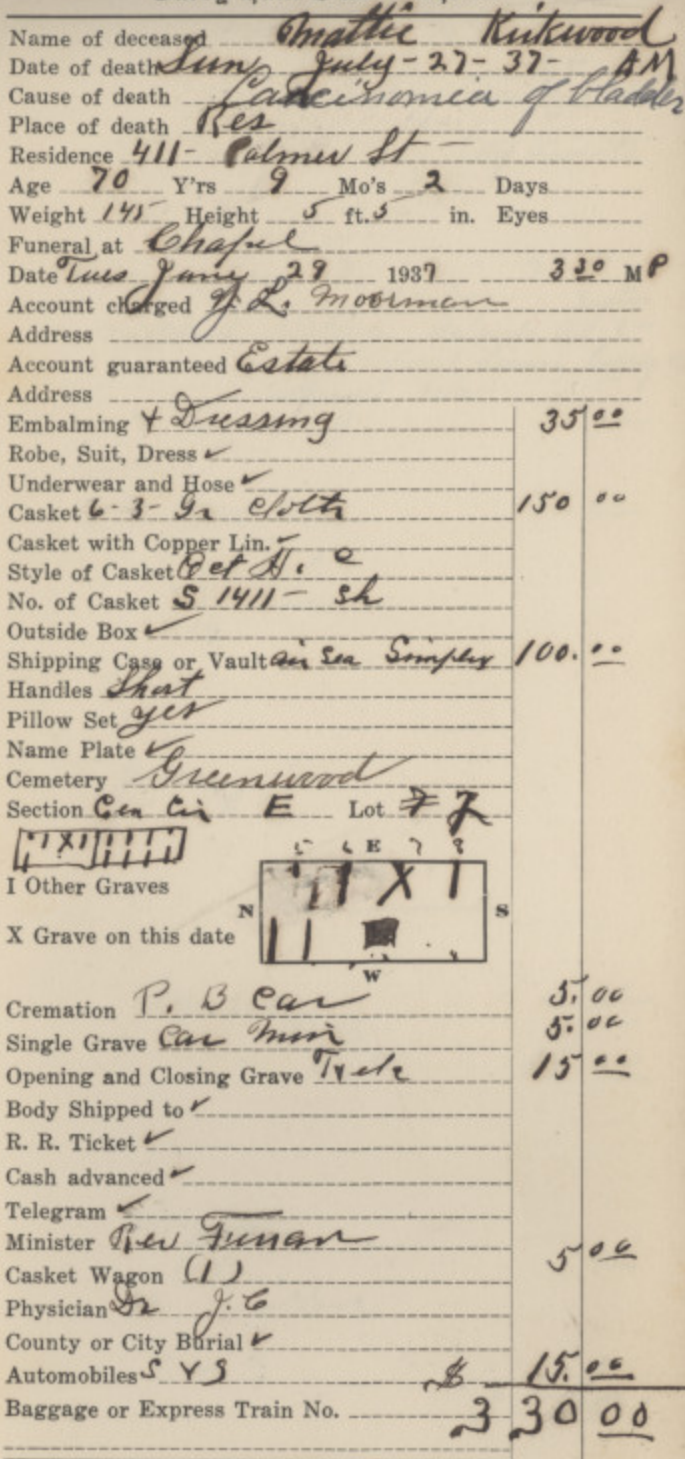 Name of deceased Mattie Kirkwood
Date of death Sun July - 27 - 37 - AM
Cause of death Carcinomia of bladder
Place of death Res
Residence 411 - Palmer St
Age 70 Y'rs 9 Mo's 2 Days
Weight 145 Height 5 ft. 5 in. Eyes
Funeral at Chapel
Date Tues June 29 1937 3 30 M P
Account charged L. Moorman
Address
Account guaranteed Estate
Address
Embalming + Dressing 35 00
Robe, Suit, Dress ✓
Underwear and Hose ✓
Casket 6 - 3 - Gr Cloth 150 00
Casket with Copper Lin. ✓
Style of Casket Oct H. C
No. of Casket S 1411 - Sh
Outside Box ✓
Shipping Case or Vault Air Sea Simplex 100. 00
Handles Short
Pillow Set yes
Name Plate ✓
Cemetery Greenwood
Section Cen Cir E Lot 7
5 6 E 7 8
I Other Graves
N X S
X Grave on this date
W
Cremation P. B Car 5. 00
Single Grave Car Min 5. 00
Opening and Closing Grave 15 00
Body Shipped to ✓
R. R. Ticket ✓
Cash advanced ✓
Telegram ✓
Minister Rev
Casket Wagon (1) 5 00
Physician Dr J. C
County or City Burial ✓
Automobiles S $ 15. 00
Baggage or Express Train No. 330 00